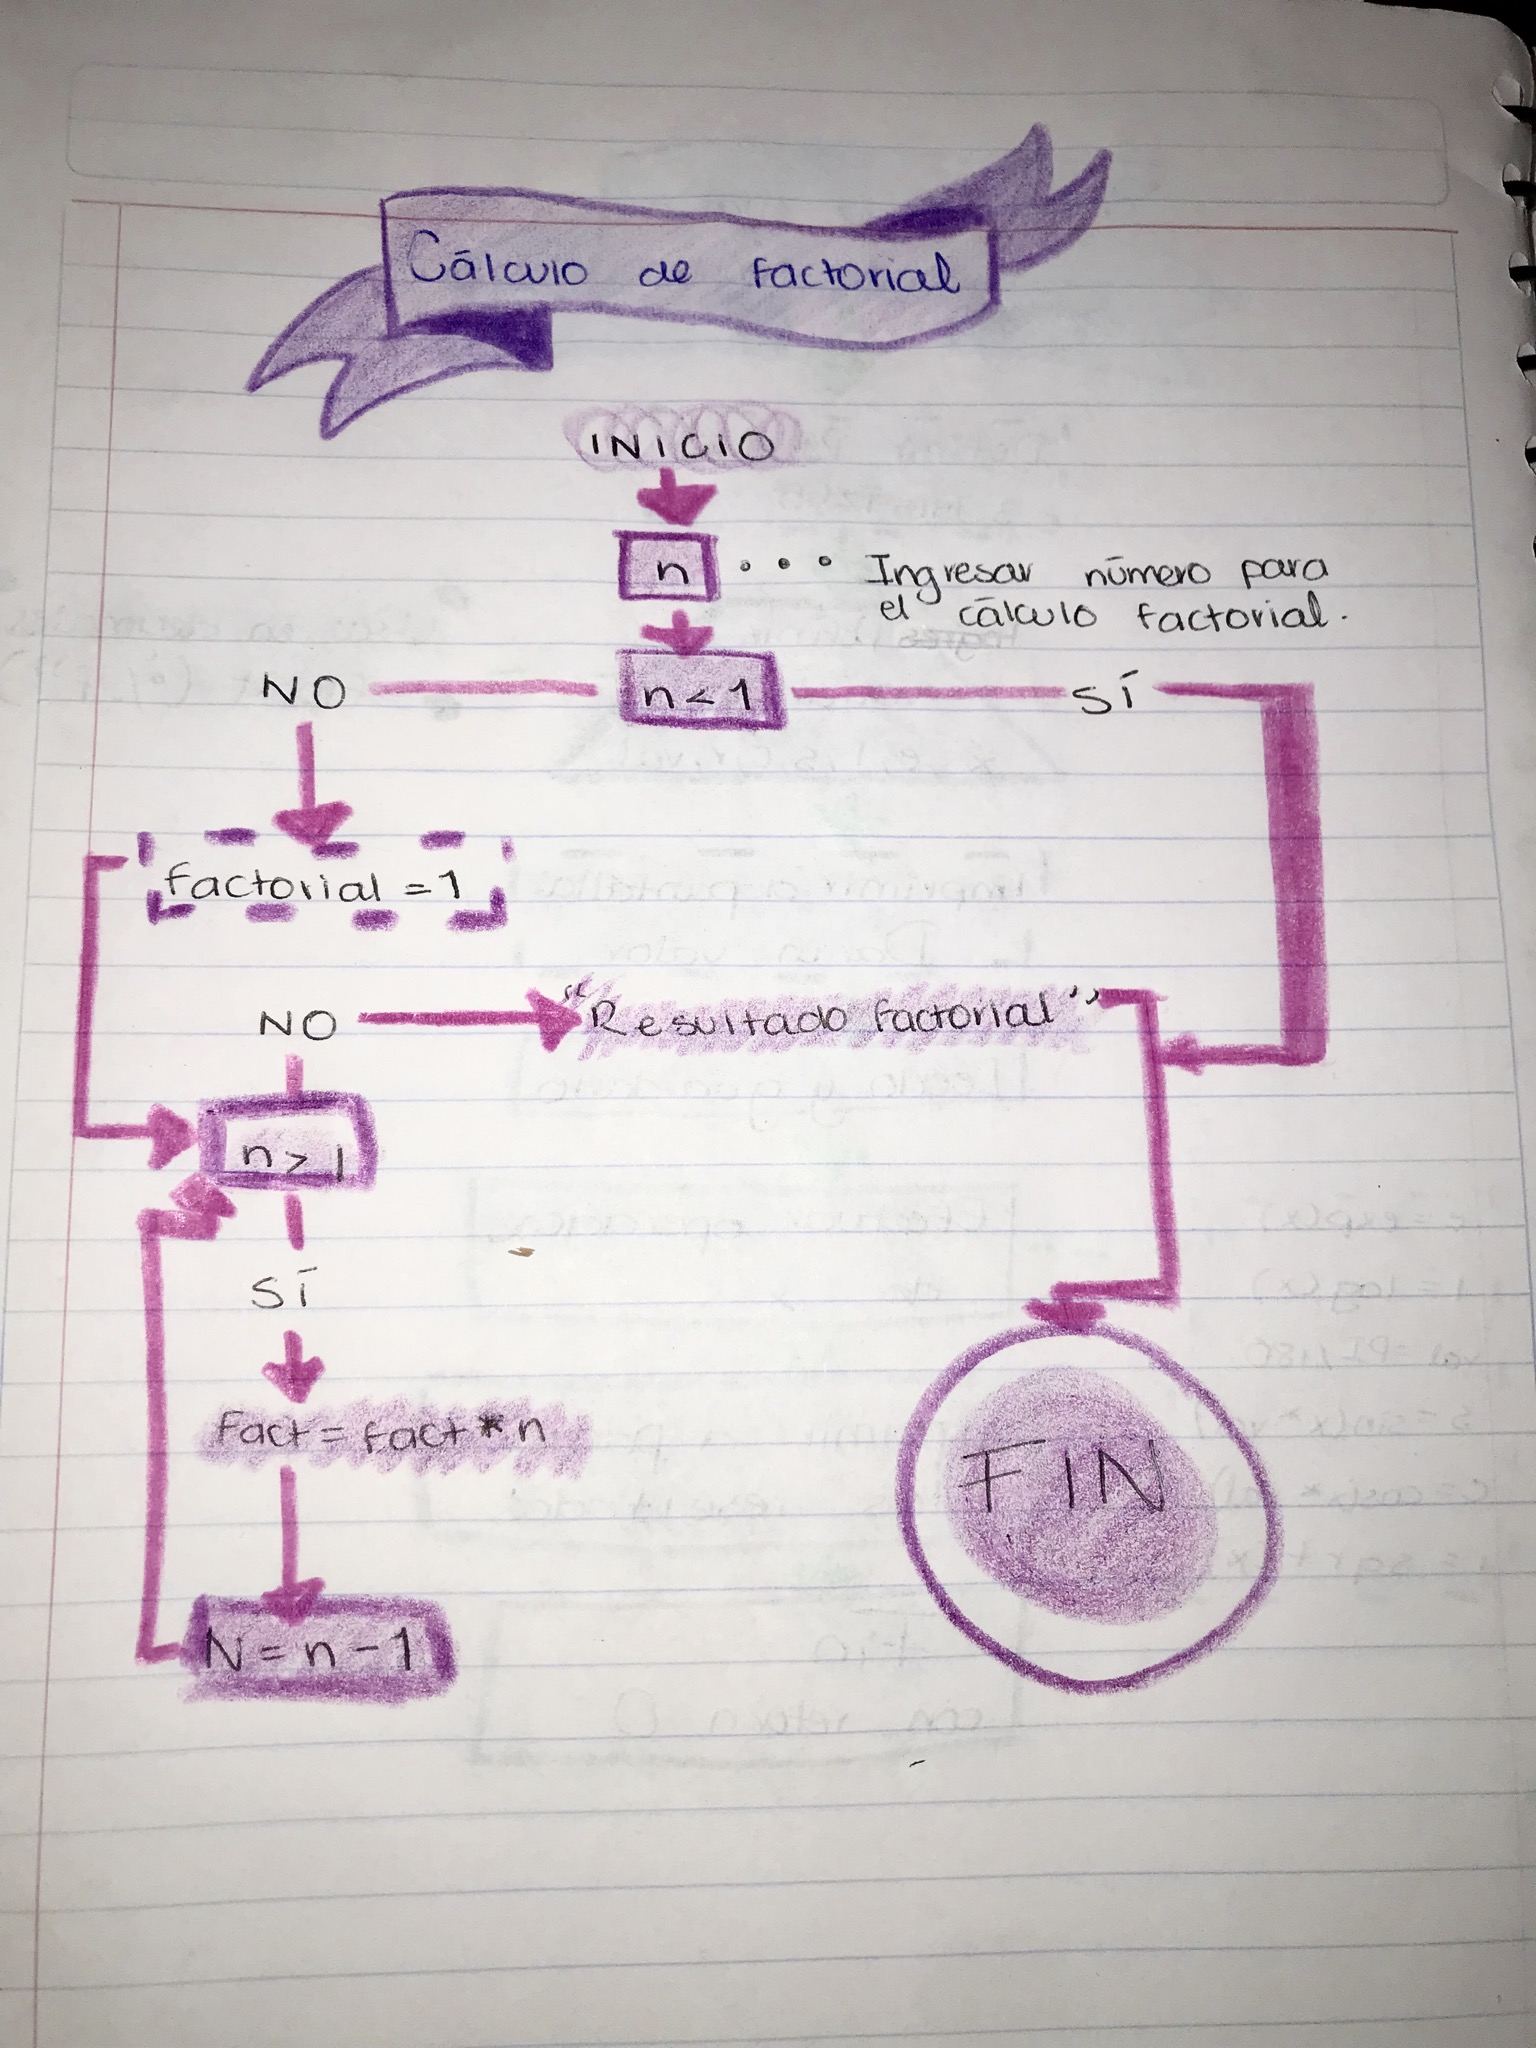 Cálculo de factorial
INICIO
n • • • Ingresar número para
el cálculo factorial.
NO n < 1 SÍ
factorial = 1
NO "Resultado factorial"
n > 1
SÍ
Fact = fact * n
FIN
N = n - 1